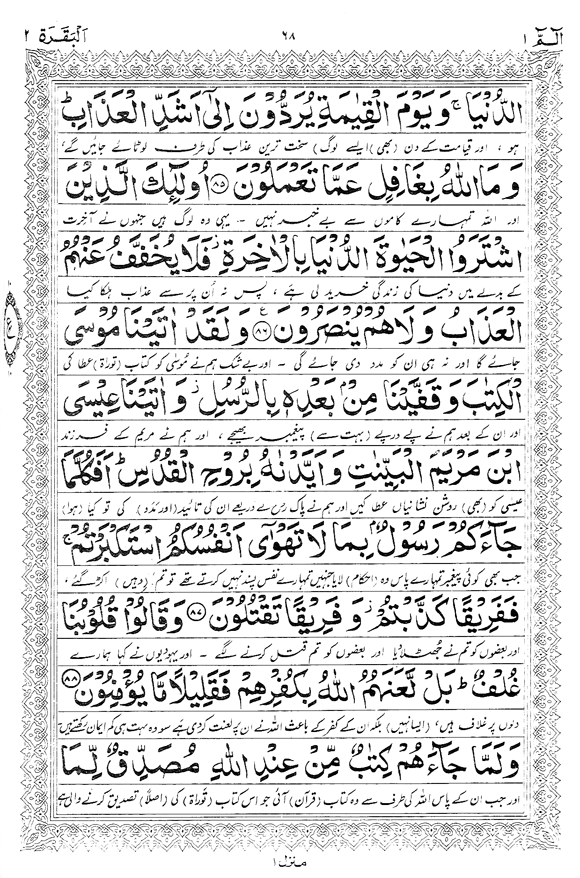 الٓمّٓ ۱ ۶۸ اَلْبَقَرَة ۲
الدُّنْيَا ۚ وَيَوْمَ الْقِيٰمَةِ يُرَدُّوْنَ اِلٰٓى اَشَدِّ الْعَذَابِ ؕ
ہو ، اور قیامت کے دن (بھی ایسے لوگ) سخت ترین عذاب کی طرف لوٹائے جائیں گے،
وَمَا اللّٰهُ بِغَافِلٍ عَمَّا تَعْمَلُوْنَ ﴿۸۵﴾ اُولٰٓئِكَ الَّذِيْنَ
اور اللہ تمہارے کاموں سے بے خبر نہیں - یہی وہ لوگ ہیں جنہوں نے آخرت
اشْتَرَوُا الْحَيٰوةَ الدُّنْيَا بِالْاٰخِرَةِ ؗ فَلَا يُخَفَّفُ عَنْهُمُ
کے بدلے میں دنیا کی زندگی خرید لی ہے ، پس نہ ان پر سے عذاب ہلکا کیا
الْعَذَابُ وَلَا هُمْ يُنْصَرُوْنَ ﴿۸۶﴾ ع وَلَقَدْ اٰتَيْنَا مُوْسَى
جائے گا اور نہ ہی ان کو مدد دی جائے گی - اور بے شک ہم نے موسٰی کو کتاب (تورات) عطا کی
الْكِتٰبَ وَقَفَّيْنَا مِنْۢ بَعْدِهٖ بِالرُّسُلِ ؗ وَاٰتَيْنَا عِيْسَى
اور ان کے بعد ہم نے پے در پے (بہت سے) پیغمبر بھیجے ، اور ہم نے مریم کے فرزند
ابْنَ مَرْيَمَ الْبَيِّنٰتِ وَاَيَّدْنٰهُ بِرُوْحِ الْقُدُسِ ؕ اَفَكُلَّمَا
عیسٰی کو (بھی) روشن نشانیاں عطا کیں اور ہم نے پاک روح کے ذریعے ان کی تائید (اور مدد) کی تو کیا (ہوا)
جَآءَكُمْ رَسُوْلٌۢ بِمَا لَا تَهْوٰٓى اَنْفُسُكُمُ اسْتَكْبَرْتُمْ ۚ
جب بھی کوئی پیغمبر تمہارے پاس وہ (احکام) لایا جنہیں تمہارے نفس پسند نہیں کرتے تھے تو تم (وہیں) اکڑ گئے ،
فَفَرِيْقًا كَذَّبْتُمْ ؗ وَفَرِيْقًا تَقْتُلُوْنَ ﴿۸۷﴾ وَقَالُوْا قُلُوْبُنَا
اور بعضوں کو تم نے جھٹلایا اور بعضوں کو تم قتل کرنے لگے - اور یہودیوں نے کہا ہمارے
غُلْفٌ ؕ بَلْ لَّعَنَهُمُ اللّٰهُ بِكُفْرِهِمْ فَقَلِيْلًا مَّا يُؤْمِنُوْنَ ﴿۸۸﴾
دلوں پر غلاف ہیں، (ایسا نہیں) بلکہ ان کے کفر کے باعث اللہ نے ان پر لعنت کر دی ہے سو وہ بہت ہی کم ایمان رکھتے ہیں
وَلَمَّا جَآءَهُمْ كِتٰبٌ مِّنْ عِنْدِ اللّٰهِ مُصَدِّقٌ لِّمَا
اور جب ان کے پاس اللہ کی طرف سے وہ کتاب (قرآن) آئی جو اس کتاب (تورات) کی (اصلاً) تصدیق کرنے والی ہے
منزل ۱